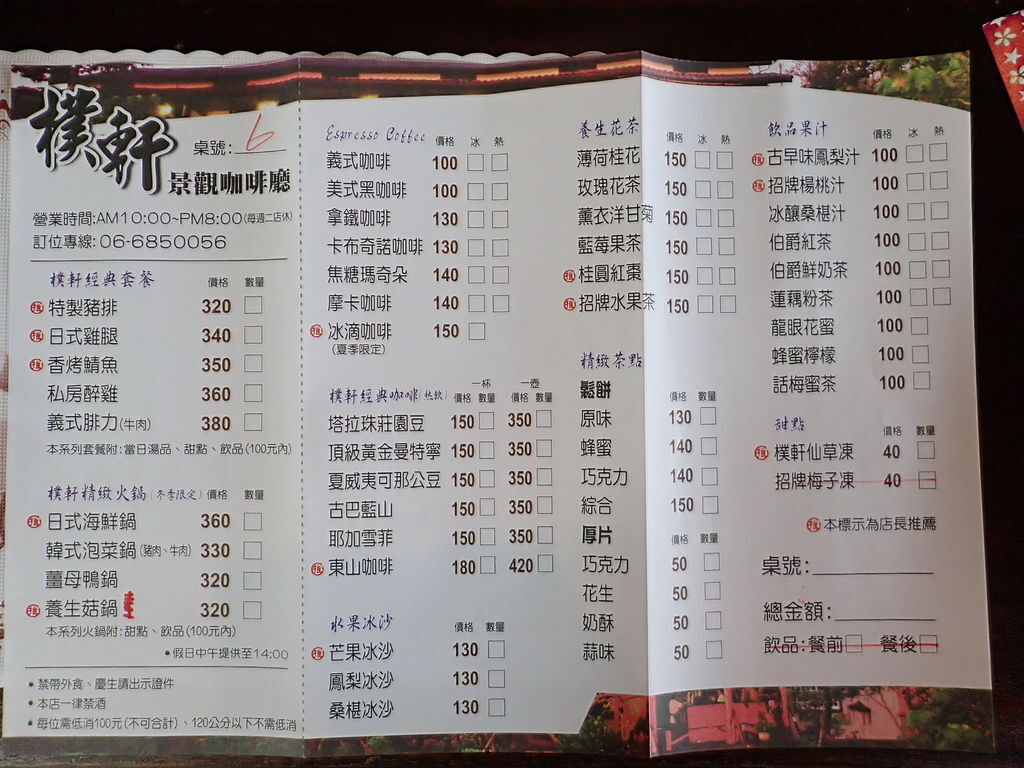 樸軒
景觀咖啡廳
桌號: 6
營業時間:AM10:00~PM8:00(每週二店休)
訂位專線:06-6850056
樸軒經典套餐 價格 數量
推 特製豬排 320
推 日式雞腿 340
推 香烤鯖魚 350
私房醉雞 360
義式腓力(牛肉) 380
本系列套餐附:當日湯品、甜點、飲品(100元內)
樸軒精緻火鍋(冬季限定) 價格 數量
推 日式海鮮鍋 360
韓式泡菜鍋(豬肉、牛肉) 330
薑母鴨鍋 320
推 養生菇鍋 320
本系列火鍋附:甜點、飲品(100元內)
•假日中午提供至14:00
•禁帶外食、慶生請出示證件
•本店一律禁酒
•每位需低消100元(不可合計)、120公分以下不需低消
Espresso Coffee 價格 冰 熱
義式咖啡 100
美式黑咖啡 100
拿鐵咖啡 130
卡布奇諾咖啡 130
焦糖瑪奇朵 140
摩卡咖啡 140
推 冰滴咖啡 150
(夏季限定)
一杯 一壺
樸軒經典咖啡(熱飲) 價格 數量 價格 數量
塔拉珠莊園豆 150 350
頂級黃金曼特寧 150 350
夏威夷可那公豆 150 350
古巴藍山 150 350
耶加雪菲 150 350
推 東山咖啡 180 420
水果冰沙 價格 數量
推 芒果冰沙 130
鳳梨冰沙 130
桑椹冰沙 130
養生花茶 價格 冰 熱
薄荷桂花 150
玫瑰花茶 150
薰衣洋甘菊 150
藍莓果茶 150
推 桂圓紅棗 150
推 招牌水果茶 150
精緻茶點
鬆餅 價格 數量
原味 130
蜂蜜 140
巧克力 140
綜合 150
厚片 價格 數量
巧克力 50
花生 50
奶酥 50
蒜味 50
飲品果汁 價格 冰 熱
推 古早味鳳梨汁 100
推 招牌楊桃汁 100
冰釀桑椹汁 100
伯爵紅茶 100
伯爵鮮奶茶 100
蓮藕粉茶 100
龍眼花蜜 100
蜂蜜檸檬 100
話梅蜜茶 100
甜點 價格 數量
推 樸軒仙草凍 40
招牌梅子凍 40
推 本標示為店長推薦
桌號:
總金額:
飲品:餐前 餐後